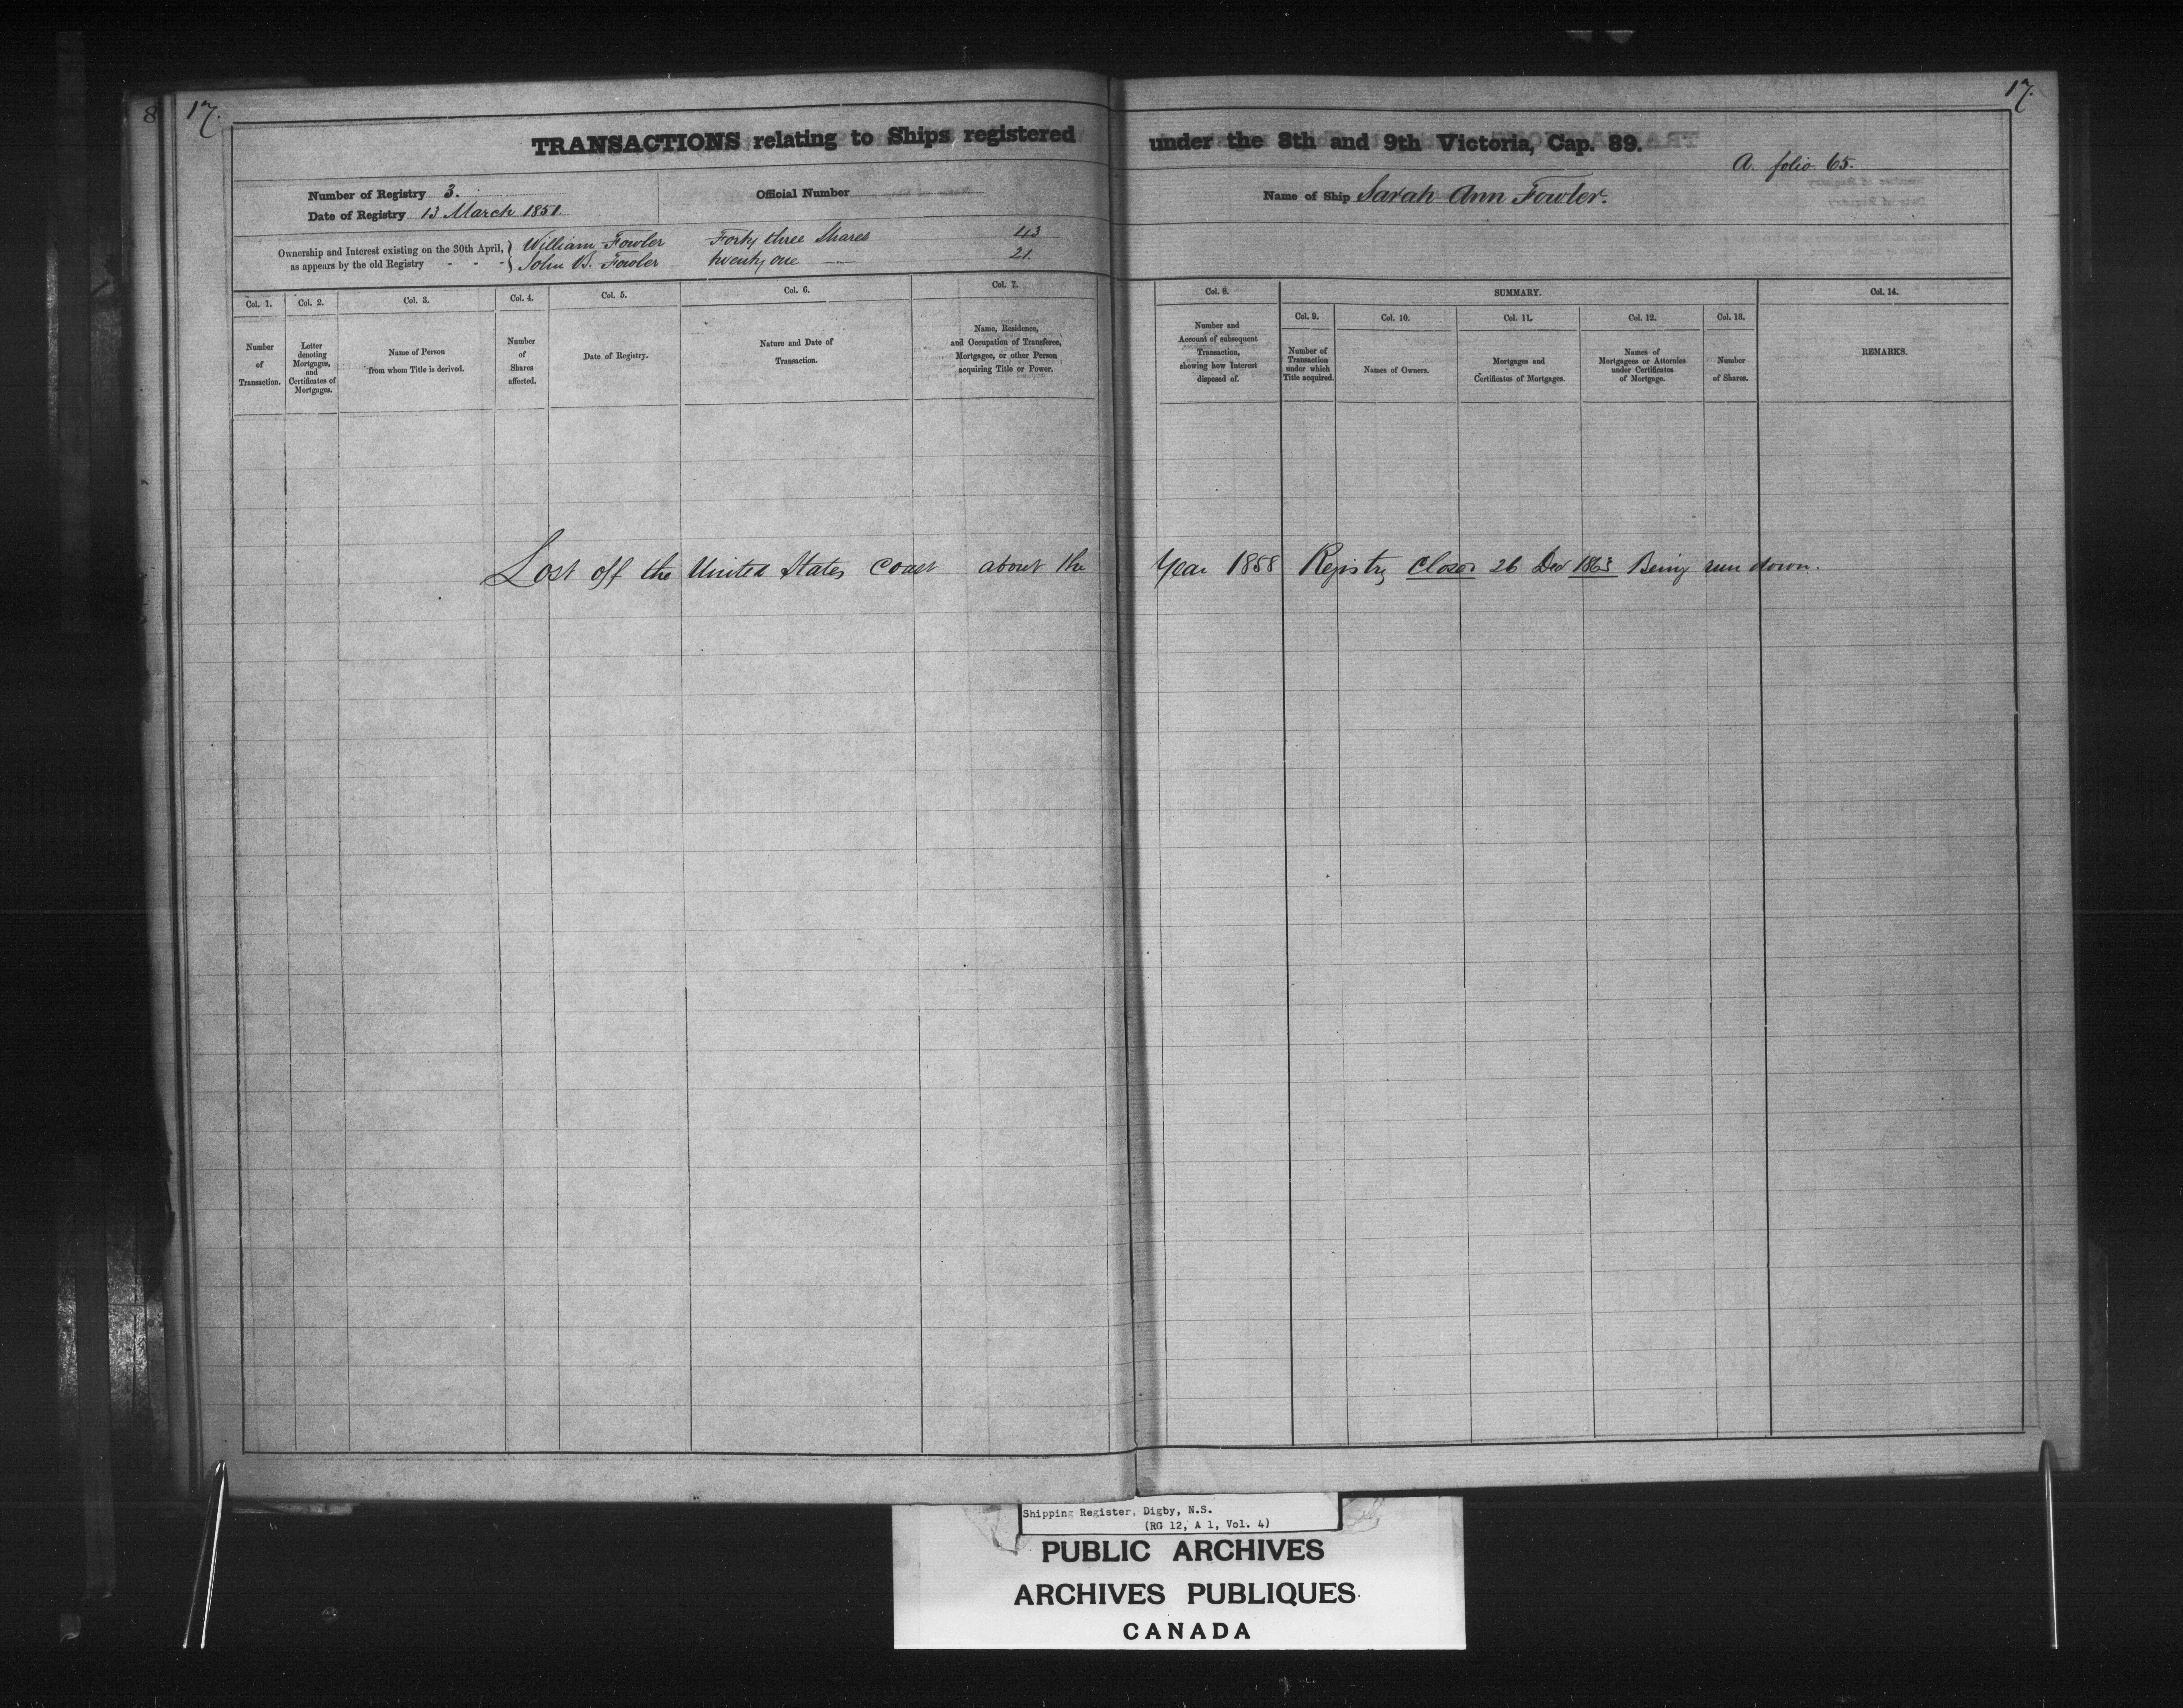 8
17.
17.
TRANSACTIONS relating to Ships registered under the 8th and 9th Victoria, Cap. 89.
A. folio 65.
Number of Registry 3.
Official Number
Name of Ship Sarah Ann Fowler.
Date of Registry 13 March 1851.
Ownership and Interest existing on the 30th April, } William Fowler Forty three Shares 43
as appears by the old Registry - - - } John B. Fowler twenty one —— 21.
Col. 1.
Number
of
Transaction.
Col. 2.
Letter
denoting
Mortgages,
and
Certificates of
Mortgages.
Col. 3.
Name of Person
from whom Title is derived.
Col. 4.
Number
of
Shares
affected.
Col. 5.
Date of Registry.
Col. 6.
Nature and Date of
Transaction.
Col. 7.
Name, Residence,
and Occupation of Transferee,
Mortgagee, or other Person
acquiring Title or Power.
Col. 8.
Number and
Account of subsequent
Transaction,
showing how Interest
disposed of.
SUMMARY.
Col. 9.
Number of
Transaction
under which
Title acquired.
Col. 10.
Names of Owners.
Col. 11.
Mortgages and
Certificates of Mortgages.
Col. 12.
Names of
Mortgagees or Attornies
under Certificates
of Mortgage.
Col. 13.
Number
of Shares.
Col. 14.
REMARKS.
Lost off the United States Coast about the Year 1858 Registry Closed 26 Dec 1863 Being run down.
Shipping Register, Digby, N.S.
(RG 12, A 1, Vol. 4)
PUBLIC ARCHIVES
ARCHIVES PUBLIQUES
CANADA